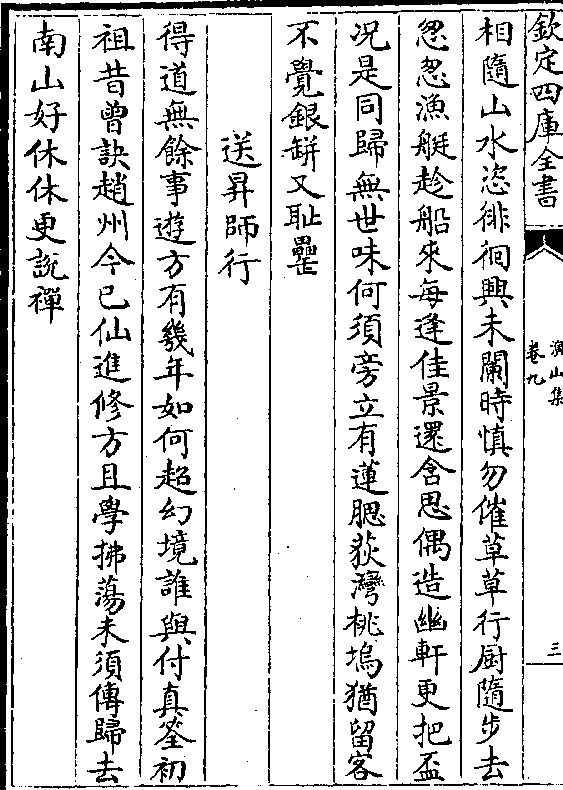 欽定四庫全書
卷九
三
相隨山水恣徘徊興未闌時慎勿催草草行厨隨步去
忽忽漁艇趁船來每逢佳景還含思偶造幽軒更把盃
况是同歸無世味何須旁立有蓮腮荻灣桃塢猶留客
不覺銀缾又耻罍
送昇師行
得道無餘事遊方有幾年如何超幻境誰與付真筌初
祖昔曾訣趙州今已仙進修方且學拂蕩未須傳歸去
南山好休休更說禪